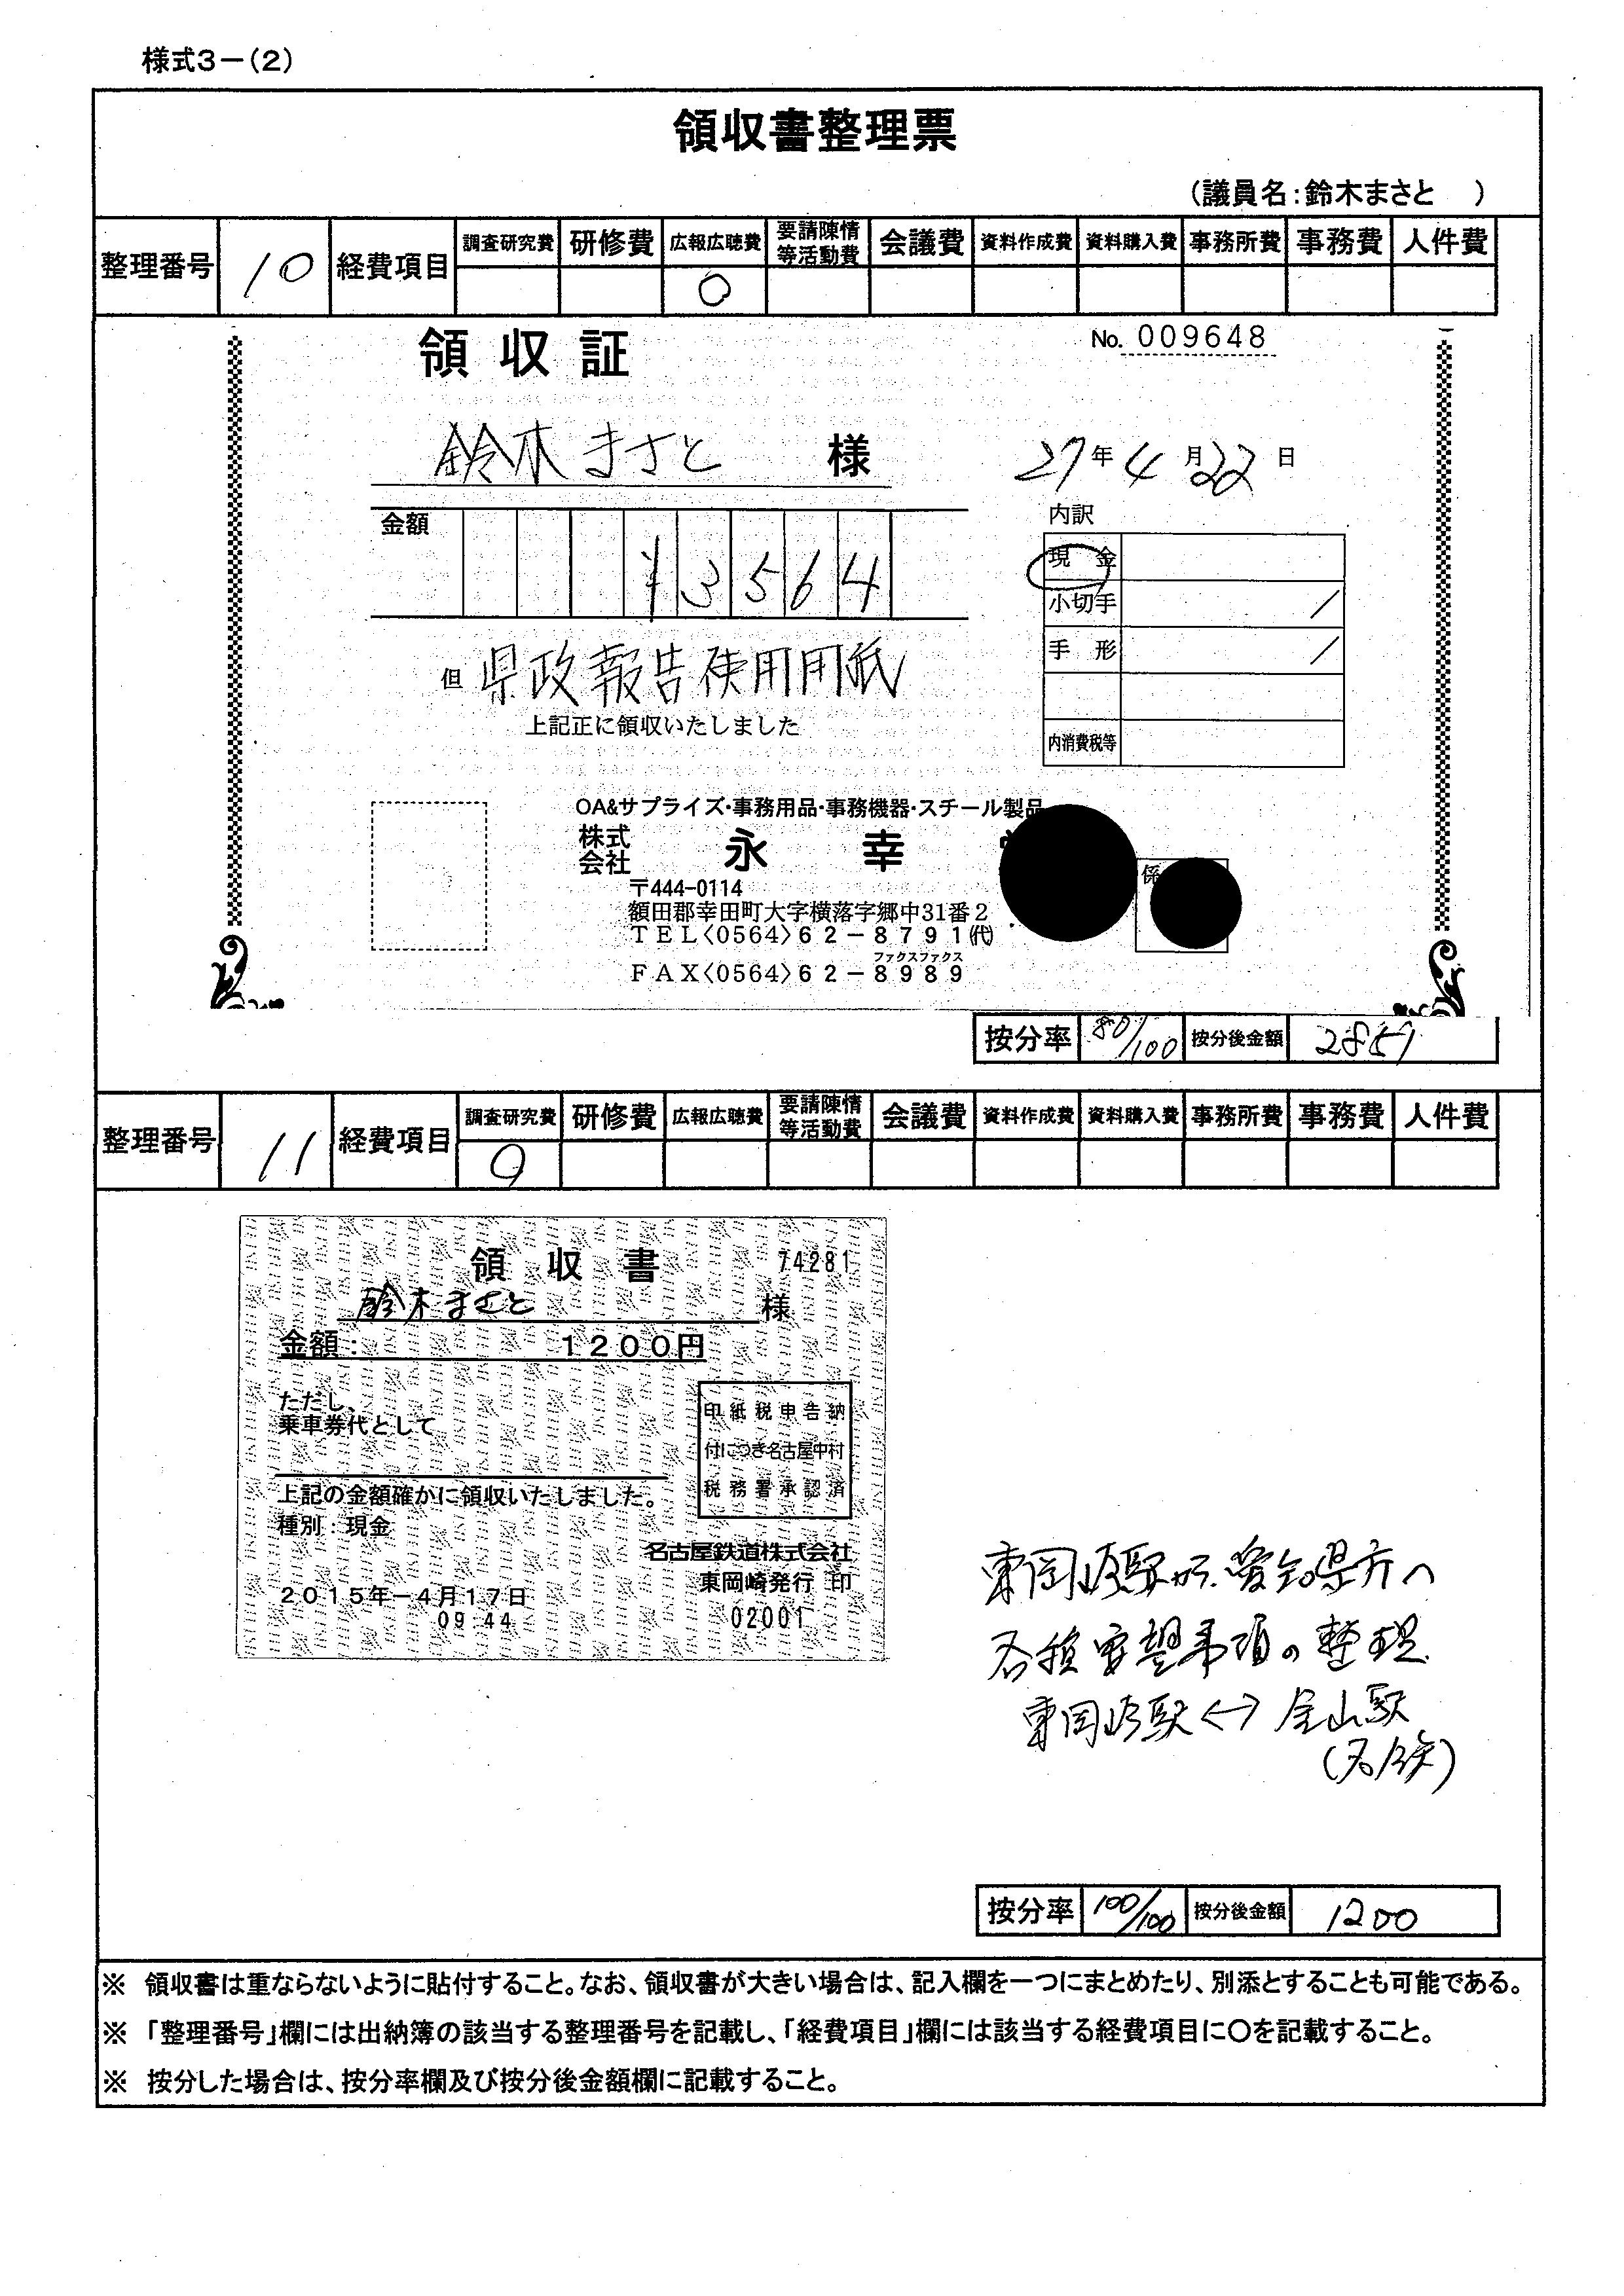 様式3－(2)
領収書整理票
(議員名:鈴木まさと　)
整理番号 10 経費項目 調査研究費 研修費 広報広聴費 要請陳情等活動費 会議費 資料作成費 資料購入費 事務所費 事務費 人件費
○
領収証
No. 009648
鈴木まさと 様
27年4月22日
金額 ¥3564
内訳
現金
小切手 /
手形 /
内消費税等
但 県政報告使用用紙
上記正に領収いたしました
OA&サプライズ・事務用品・事務機器・スチール製品
株式会社 永幸
〒444-0114
額田郡幸田町大字横落字郷中31番2
TEL〈0564〉62－8791(代)
ファクスファクス
FAX〈0564〉62－8989
係
按分率 80/100 按分後金額 2851
整理番号 11 経費項目 調査研究費 研修費 広報広聴費 要請陳情等活動費 会議費 資料作成費 資料購入費 事務所費 事務費 人件費
○
領収書 74281
鈴木まさと 様
金額: 1200円
ただし、
乗車券代として
印紙税申告納
付につき名古屋中村
税務署承認済
上記の金額確かに領収いたしました。
種別:現金
名古屋鉄道株式会社
東岡崎発行 印
2015年－4月17日
09:44
02001
東岡崎駅から愛知県庁へ
各種要望事項の整理
東岡崎駅↔金山駅
(名鉄)
按分率 100/100 按分後金額 1200
※ 領収書は重ならないように貼付すること。なお、領収書が大きい場合は、記入欄を一つにまとめたり、別添とすることも可能である。
※ 「整理番号」欄には出納簿の該当する整理番号を記載し、「経費項目」欄には該当する経費項目に○を記載すること。
※ 按分した場合は、按分率欄及び按分後金額欄に記載すること。